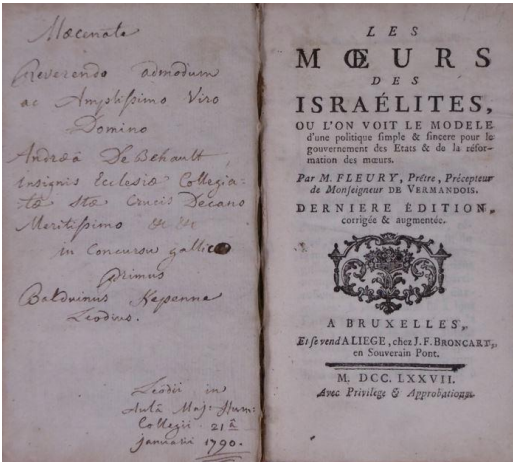 Mæcenate
Reverendo admodum
ac Amplissimo Viro
Domino
Andreâ De Behault
insignis Ecclesiæ Collegia-
tæ Stæ Crucis Decano
Meritissimo &c &c
in Concursu gallico
Primus
Balduinus
Leodius.
Leodii in
Aulâ Maj. Hum:
Collegii 21â
januarii 1790.
LES
MŒURS
DES
ISRAÉLITES,
OU L'ON VOIT LE MODELE
d'une politique simple & sincere pour le
gouvernement des Etats & de la réfor-
mation des mœurs.
Par M. FLEURY, Prêtre, Précepteur
de Monseigneur DE VERMANDOIS.
DERNIERE ÉDITION,
corrigée & augmentée.
A BRUXELLES,
Et se vend A LIEGE, chez J. F. BRONCART,
en Souverain Pont.
M. DCC. LXXVII.
Avec Privilege & Approbation.